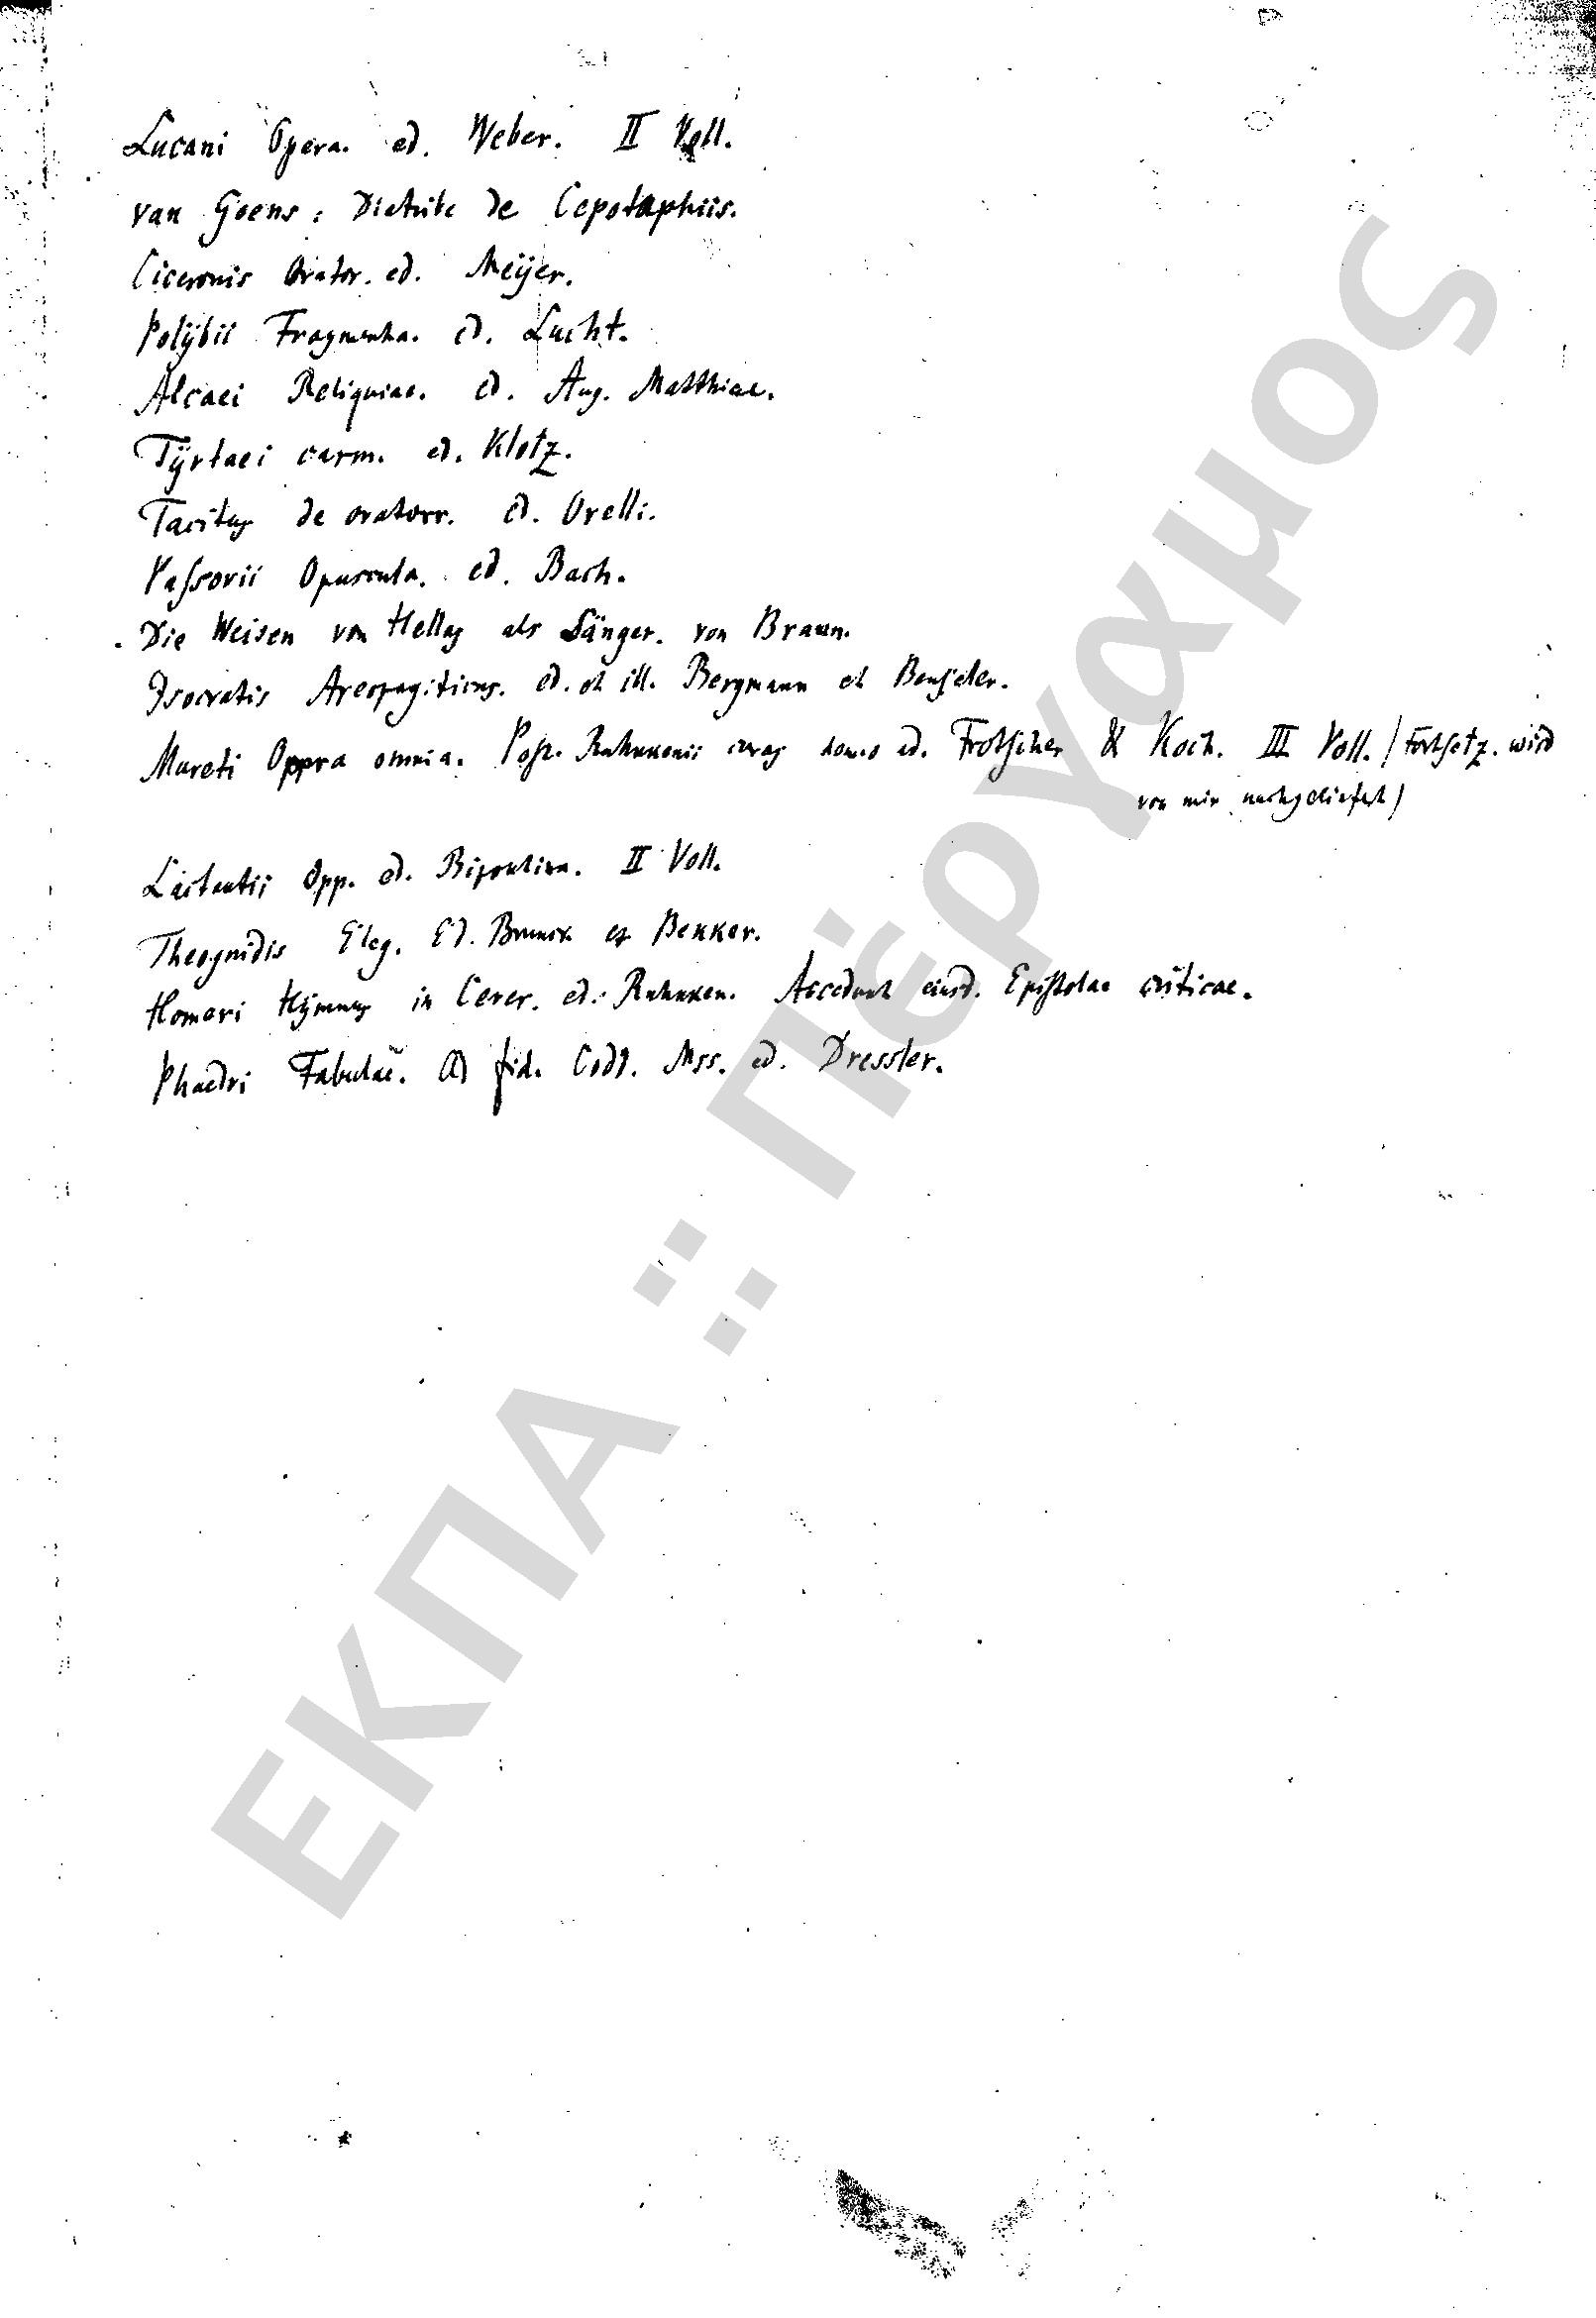 Lucani Opera. ed. Weber. II Voll.
van Goens: Diatribe de Cepotaphiis.
Ciceronis Orator. ed. Meÿer.
Polÿbii Fragmenta. ed. Lucht.
Alcaei Reliquiae. ed. Aug. Matthiae.
Tÿrtaei carm. ed. Klotz.
Tacitus de oratorr. ed. Orelli.
Passovii Opuscula. ed. Bach.
Die Weisen von Hellas als Sänger. von Braun.
Isocratis Areopagiticus. ed. et ill. Bergmann et Benseler.
Mureti Oppra omnia. Post. Ruhnkenii curas ed. Frotscher & Koch. III Voll. / Fortsetz. wird
von mir nachgeliefert /
Lactantii Opp. ed. Bipontina. II Voll.
Theognidis Eleg. Ed. Brunck et Bekker.
Homeri Hÿmnus in Cerer. ed. Ruhnken. Accedunt eiusd. Epistolae criticae.
Phaedri Fabulae. ad fid. Codd. Mss. ed. Dressler.
ΕΚΠΑ :: Πέργαμος